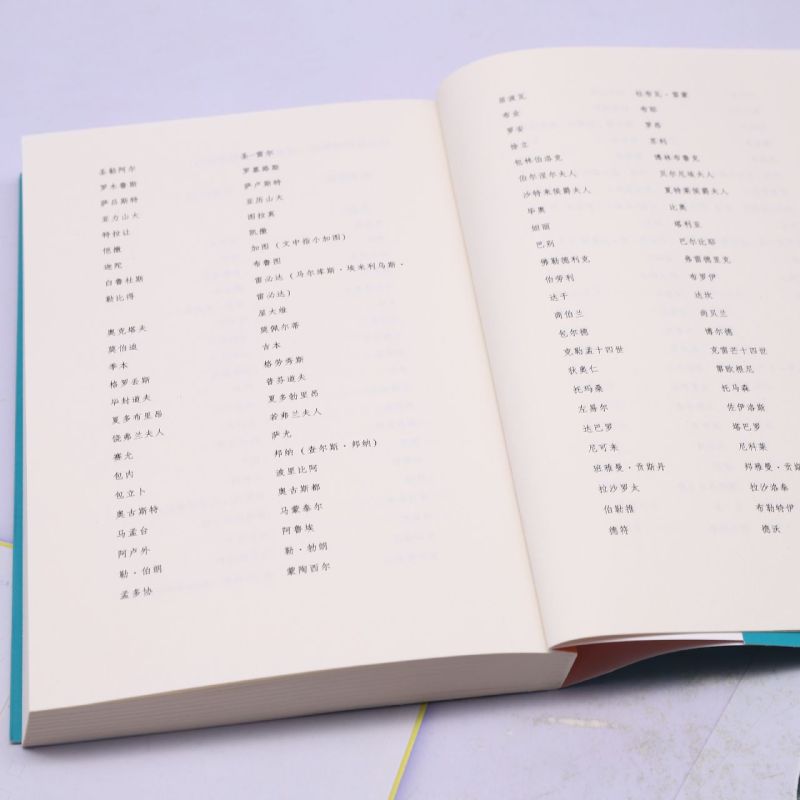 圣勒阿尔 圣-雷尔
罗木鲁斯 罗慕路斯
萨吕斯特 萨卢斯特
亚力山大 亚历山大
特拉让 图拉真
恺撒 凯撒
迦陀 加图（文中指小加图）
白鲁杜斯 布鲁图
勒比得 雷必达（马尔库斯·埃米利乌斯·
雷必达）
屋大维
奥克塔夫 莫佩尔蒂
莫伯迪 吉本
季本 格劳秀斯
格罗丢斯 普芬道夫
毕封道夫 夏多勃里昂
夏多布里昂 若弗兰夫人
饶弗兰夫人 萨尤
赛尤 邦纳（查尔斯·邦纳）
包内 波里比阿
包立卜 奥古斯都
奥古斯特 马蒙泰尔
马孟台 阿鲁埃
阿卢外 勒·勃朗
勒·伯朗 蒙陶西尔
孟多协
居波瓦 杜布瓦·雷蒙
布金 布耶
罗安 罗翰
徐立 苏利
包林伯洛克 博林布鲁克
伯尔涅尔夫人 贝尔尼埃夫人
沙特来侯爵夫人 夏特莱侯爵夫人
毕奥 比奥
妲丽 塔利亚
巴别 巴尔比耶
佛勒德利克 弗雷德里克
伯劳利 布罗伊
达干 达坎
尚伯兰 尚贝兰
包尔德 博尔德
克勒孟十四世 克雷芒十四世
狄奥仁 第欧根尼
托玛桑 托马森
左易尔 佐伊洛斯
达巴罗 塔巴罗
尼可来 尼科莱
班雅曼·贡斯丹 邦雅曼·贡斯
拉沙罗夫 拉沙洛泰
伯勒推 布勒特伊
德符 德沃